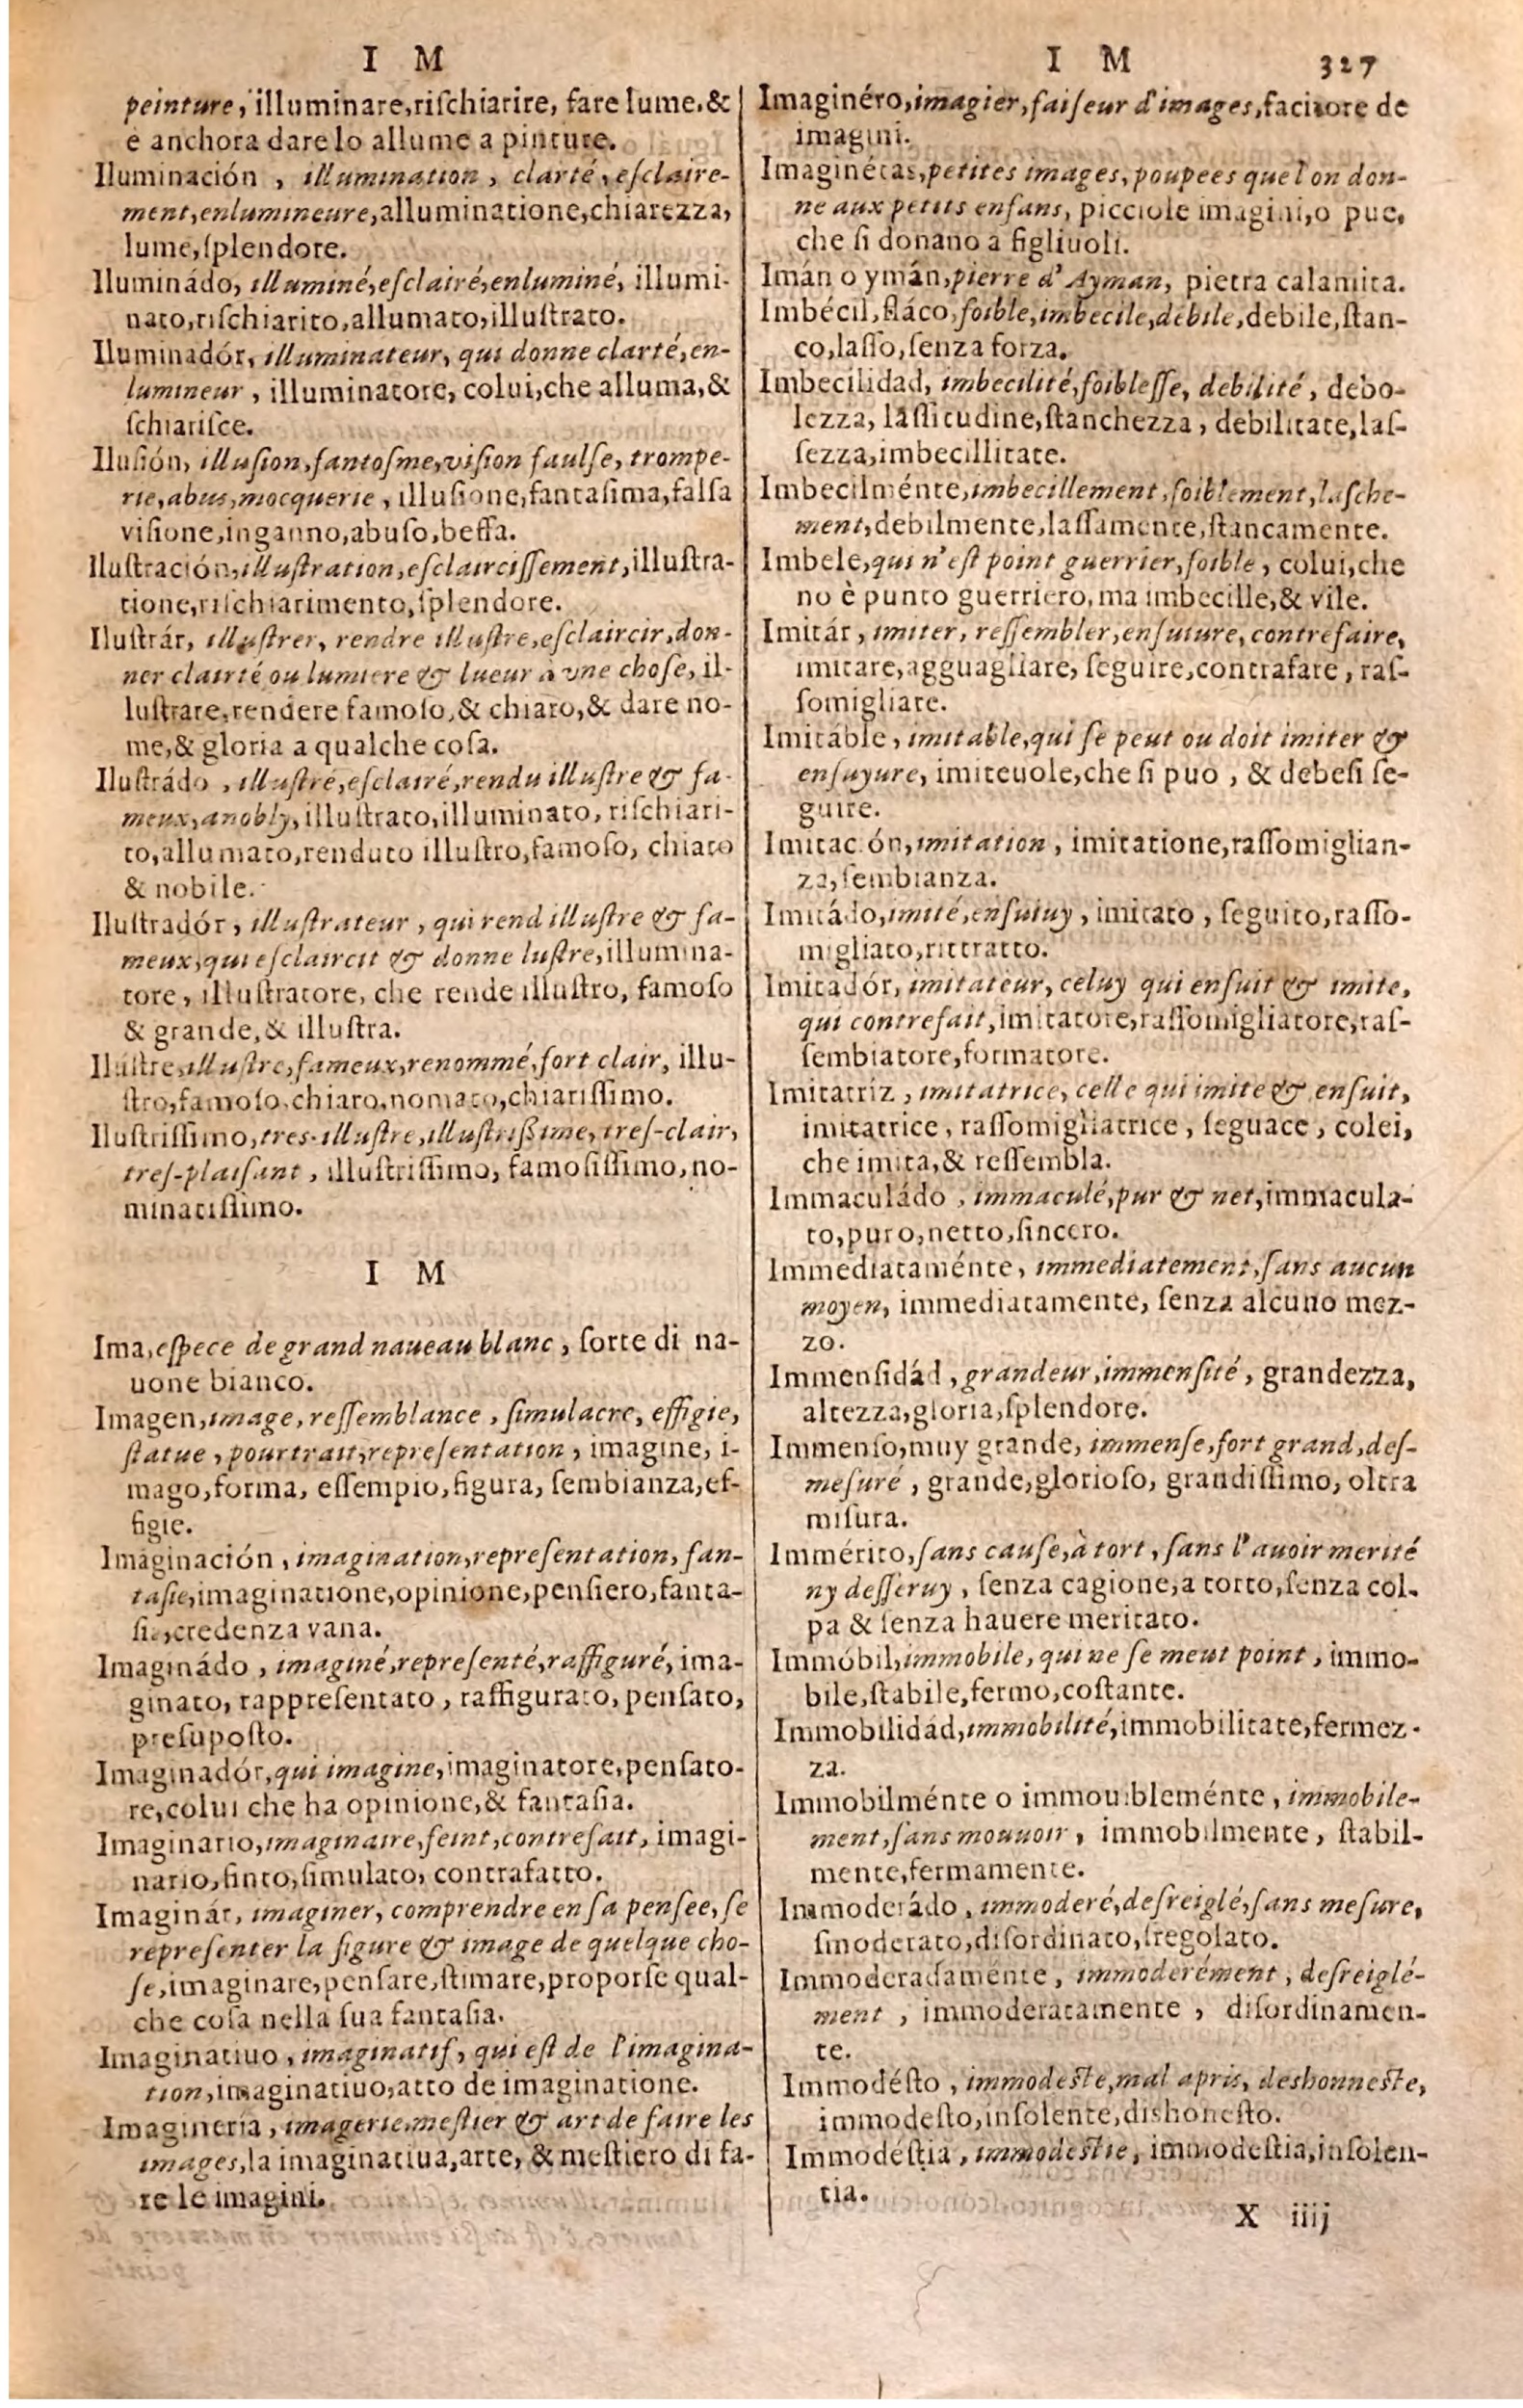 I M
peinture, illuminare,riſchiarire, fare lume,&
e anchora dare lo allume a pinture.
Iluminación , illumination , clarté,eſclaire-
ment,enlumineure,alluminatione,chiarezza,
lume,ſplendore.
Iluminádo, illuminé,eſclairé,enluminé, illumi-
nato,riſchiarito,allumato,illuſtrato.
Iluminadór, illuminateur, qui donne clarté,en-
lumineur , illuminatore, colui,che alluma,&
ſchiariſce.
Iluſión, illuſion,fantoſme,viſion faulſe, trompe-
rie,abus,mocquerie , illuſione,fantaſima,falſa
viſione,inganno,abuſo,beffa.
Iluſtración,illuſtration,eſclairciſſement,illuſtra-
tione,riſchiarimento,ſplendore.
Iluſtrár, illuſtrer, rendre illuſtre,eſclaircir,don-
ner clairté ou lumiere & lueur à vne choſe, il-
luſtrare,rendere famoſo,& chiaro,& dare no-
me,& gloria a qualche coſa.
Iluſtrádo , illuſtré,eſclairé,rendu illuſtre & fa-
meux,anobly,illuſtrato,illuminato, riſchiari-
to,allumato,renduto illuſtro,famoſo, chiaro
& nobile.
Iluſtradór , illuſtrateur , qui rend illuſtre & fa-
meux,qui eſclaircit & donne luſtre,illumina-
tore, illuſtratore, che rende illuſtro, famoſo
& grande,& illuſtra.
Iluſtre,illuſtre,fameux,renommé,fort clair, illu-
ſtro,famoſo,chiaro,nomato,chiariſſimo.
Iluſtriſſimo,tres-illuſtre,illuſtrißime,treſ-clair,
treſ-plaiſant , illuſtriſſimo, famoſiſſimo,no-
minatiſſimo.
I M
Ima,eſpece de grand naueau blanc , ſorte di na-
uone bianco.
Imagen,image,reſſemblance , ſimulacre, effigie,
ſtatue , pourtrait,repreſentation , imagine, i-
mago,forma, eſſempio,figura, ſembianza,ef-
figie.
Imaginación , imagination,repreſentation, fan-
taſie,imaginatione,opinione,penſiero,fanta-
ſia,credenza vana.
Imaginádo , imaginé,repreſenté,raffiguré, ima-
ginato, rappreſentato , raffigurato, penſato,
preſupoſto.
Imaginadór,qui imagine,imaginatore,penſato-
re,colui che ha opinione,& fantaſia.
Imaginario,imaginaire,feint,contrefait, imagi-
nario,finto,ſimulato, contrafatto.
Imaginár, imaginer, comprendre en ſa penſee, ſe
repreſenter la figure & image de quelque cho-
ſe,imaginare,penſare,ſtimare,proporſe qual-
che coſa nella ſua fantaſia.
Imaginatiuo , imaginatif, qui eſt de l'imagina-
tion,imaginatiuo,atto de imaginatione.
Imagineria , imagerie,meſtier & art de faire les
images,la imaginatiua,arte, & meſtiero di fa-
re le imagini.
I M 327
Imaginéro,imagier,faiſeur d'images,facitore de
imagini.
Imaginétas,petites images,poupees que l'on don-
ne aux petits enfans, picciole imagini,o pue,
che ſi donano a figliuoli.
Imán o ymán,pierre d'Ayman, pietra calamita.
Imbécil, fláco,foible,imbecile,debile,debile,ſtan-
co,laſſo,ſenza forza.
Imbecilidad, imbecilité,foibleſſe, debilité , debo-
lezza, laſſitudine,ſtanchezza , debilitate,laſ-
ſezza,imbecillitate.
Imbecilménte,imbecillement,foiblement,laſche-
ment,debilmente,laſſamente,ſtancamente.
Imbele,qui n'eſt point guerrier,foible , colui,che
no è punto guerriero,ma imbecille,& vile.
Imitár , imiter, reſſembler,enſuiure,contrefaire,
imitare,agguagliare, ſeguire,contrafare , raſ-
ſomigliare.
Imitáble , imitable,qui ſe peut ou doit imiter &
enſuyure, imiteuole,che ſi puo , & debeſi ſe-
guire.
Imitación,imitation , imitatione,raſſomiglian-
za,ſembianza.
Imitádo,imité,enſuiuy , imitato , ſeguito,raſſo-
migliato,rittratto.
Imitadór, imitateur, celuy qui enſuit & imite,
qui contrefait,imitatore,raſſomigliatore,raſ-
ſembiatore,formatore.
Imitatriz , imitatrice, celle qui imite & enſuit,
imitatrice , raſſomigliatrice , ſeguace , colei,
che imita,& reſſembla.
Immaculádo , immaculé,pur & net,immacula-
to,puro,netto,ſincero.
Immediataménte, immediatement,ſans aucun
moyen, immediatamente, ſenza alcuno mez-
zo.
Immenſidád , grandeur,immenſité , grandezza,
altezza,gloria,ſplendore.
Immenſo,muy grande, immenſe,fort grand,deſ-
meſuré , grande,glorioſo, grandiſſimo, oltra
miſura.
Immérito,ſans cauſe,à tort, ſans l'auoir merité
ny deſſeruy , ſenza cagione,a torto,ſenza col-
pa & ſenza hauere meritato.
Immóbil,immobile, qui ne ſe meut point , immo-
bile,ſtabile,fermo,coſtante.
Immobilidád,immobilité,immobilitate,fermez-
za.
Immobilménte o immouibleménte , immobile-
ment,ſans mouuoir, immobilmente, ſtabil-
mente,fermamente.
Immoderádo , immoderé,deſreiglé,ſans meſure,
ſmoderato,diſordinato,ſregolato.
Immoderadaménte , immoderément , deſreiglé-
ment , immoderatamente , diſordinamen-
te.
Immodéſto , immodeſte,mal apris, deshonneſte,
immodeſto,inſolente,dishoneſto.
Immodéſtia , immodeſtie, immodeſtia,inſolen-
tia.
X iiij